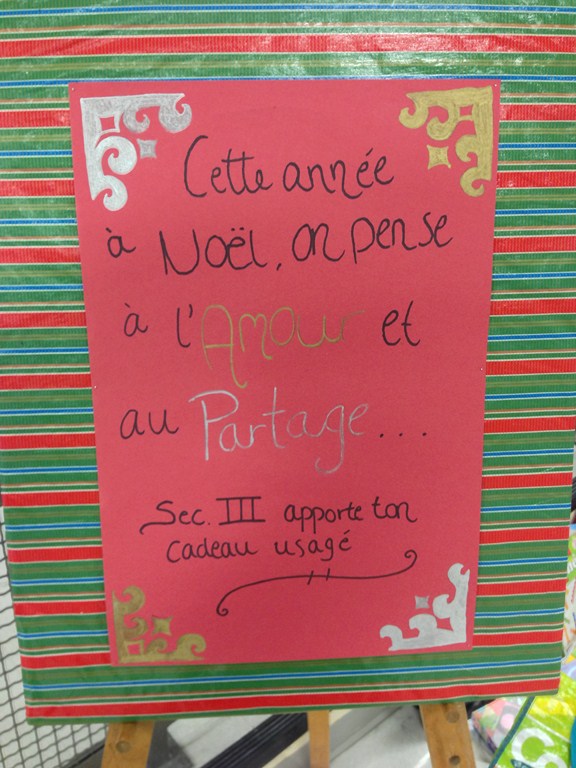 Cette année
à Noël, on pense
à l'Amour et
au Partage...
Sec. III apporte ton
cadeau usagé